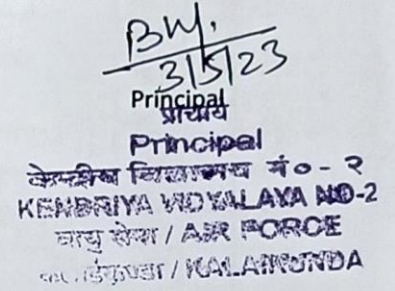 3/5/23
Principal
प्राचार्य
Principal
केन्द्रीय विद्यालय नं० - २
KENDRIYA VIDYALAYA NO-2
वायु सेना / AIR FORCE
/ KALAIKUNDA